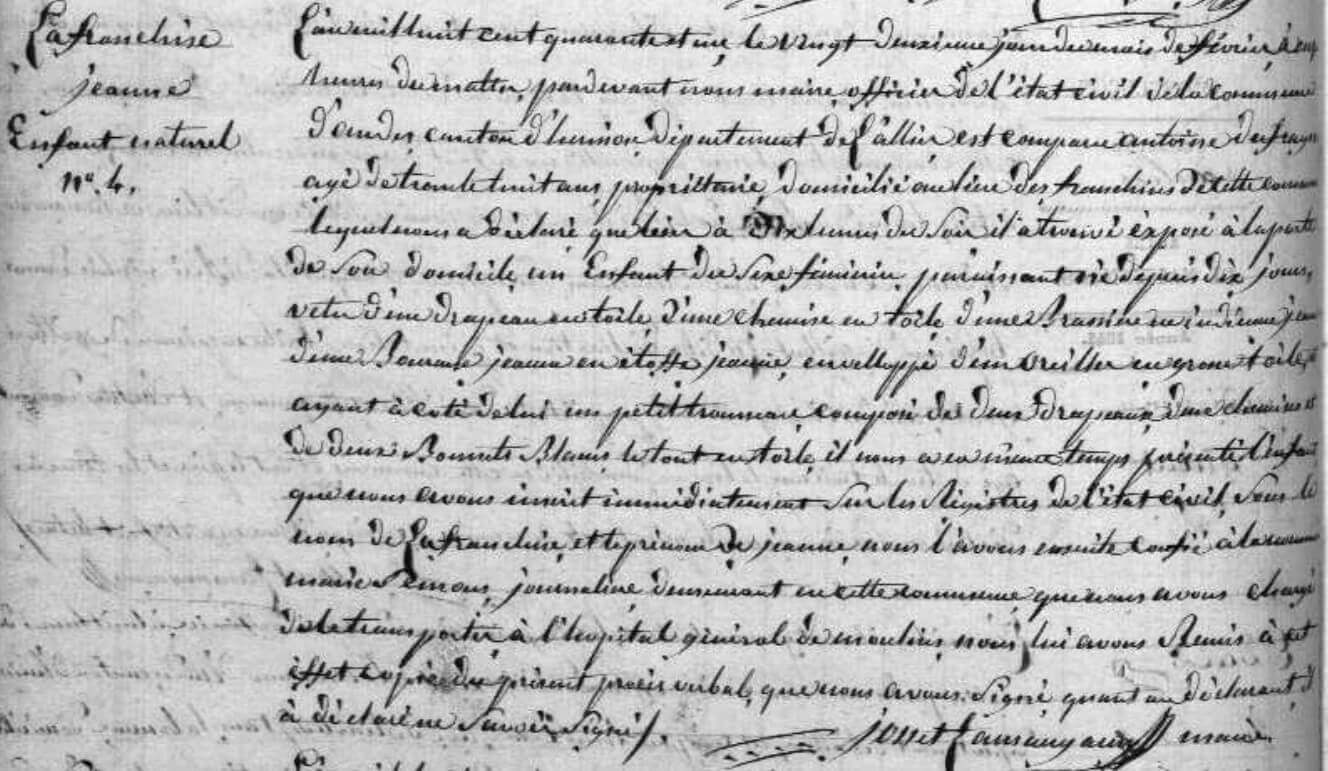 La franchise
jeanne
Enfant naturel
n°. 4.
L'an mil huit cent quarante et un, le vingt deuxieme jour du mois de février, à
heures du matin, pardevant nous maire, officier de l'état civil de la commune
canton d'hurison, département de L'allier est comparu antoine
agé de trente huit ans, propriétaire, domicilié au lieu des franchises de cette commune
lequel nous a déclaré que hier à Dix heures du Soir il a trouvé éxposé à la porte
de Son domicile, un Enfant du Sexe féminin, paraissant né depuis dix jours,
vetu d'un drapeau en toile, d'une chemise en toile, d'une Brassière en indienne
d'une jaune en étoffe jaune, enveloppé d'un oreiller en grosse toile,
ayant à coté de lui un petit trousseau composé de deux drapeaux, d'une chemise et
de deux Bonnets Blancs le tout en toile, il nous a en même temps présenté l'enfant
que nous avons inscrit immédiatement Sur les Régistres de l'état civil, Sous le
nom de La franchise, et le prénom de jeanne, nous l'avons ensuite confié à la
marie journaliere demeurant en cette commune que nous avons chargé
de le transporter à l'hopital général de moulins, nous lui avons Remis à cet
éffet copie du présent procès verbal, que nous avons Signé quant au déclarant, il
à déclaré ne Savoir Signé.
josset maire.